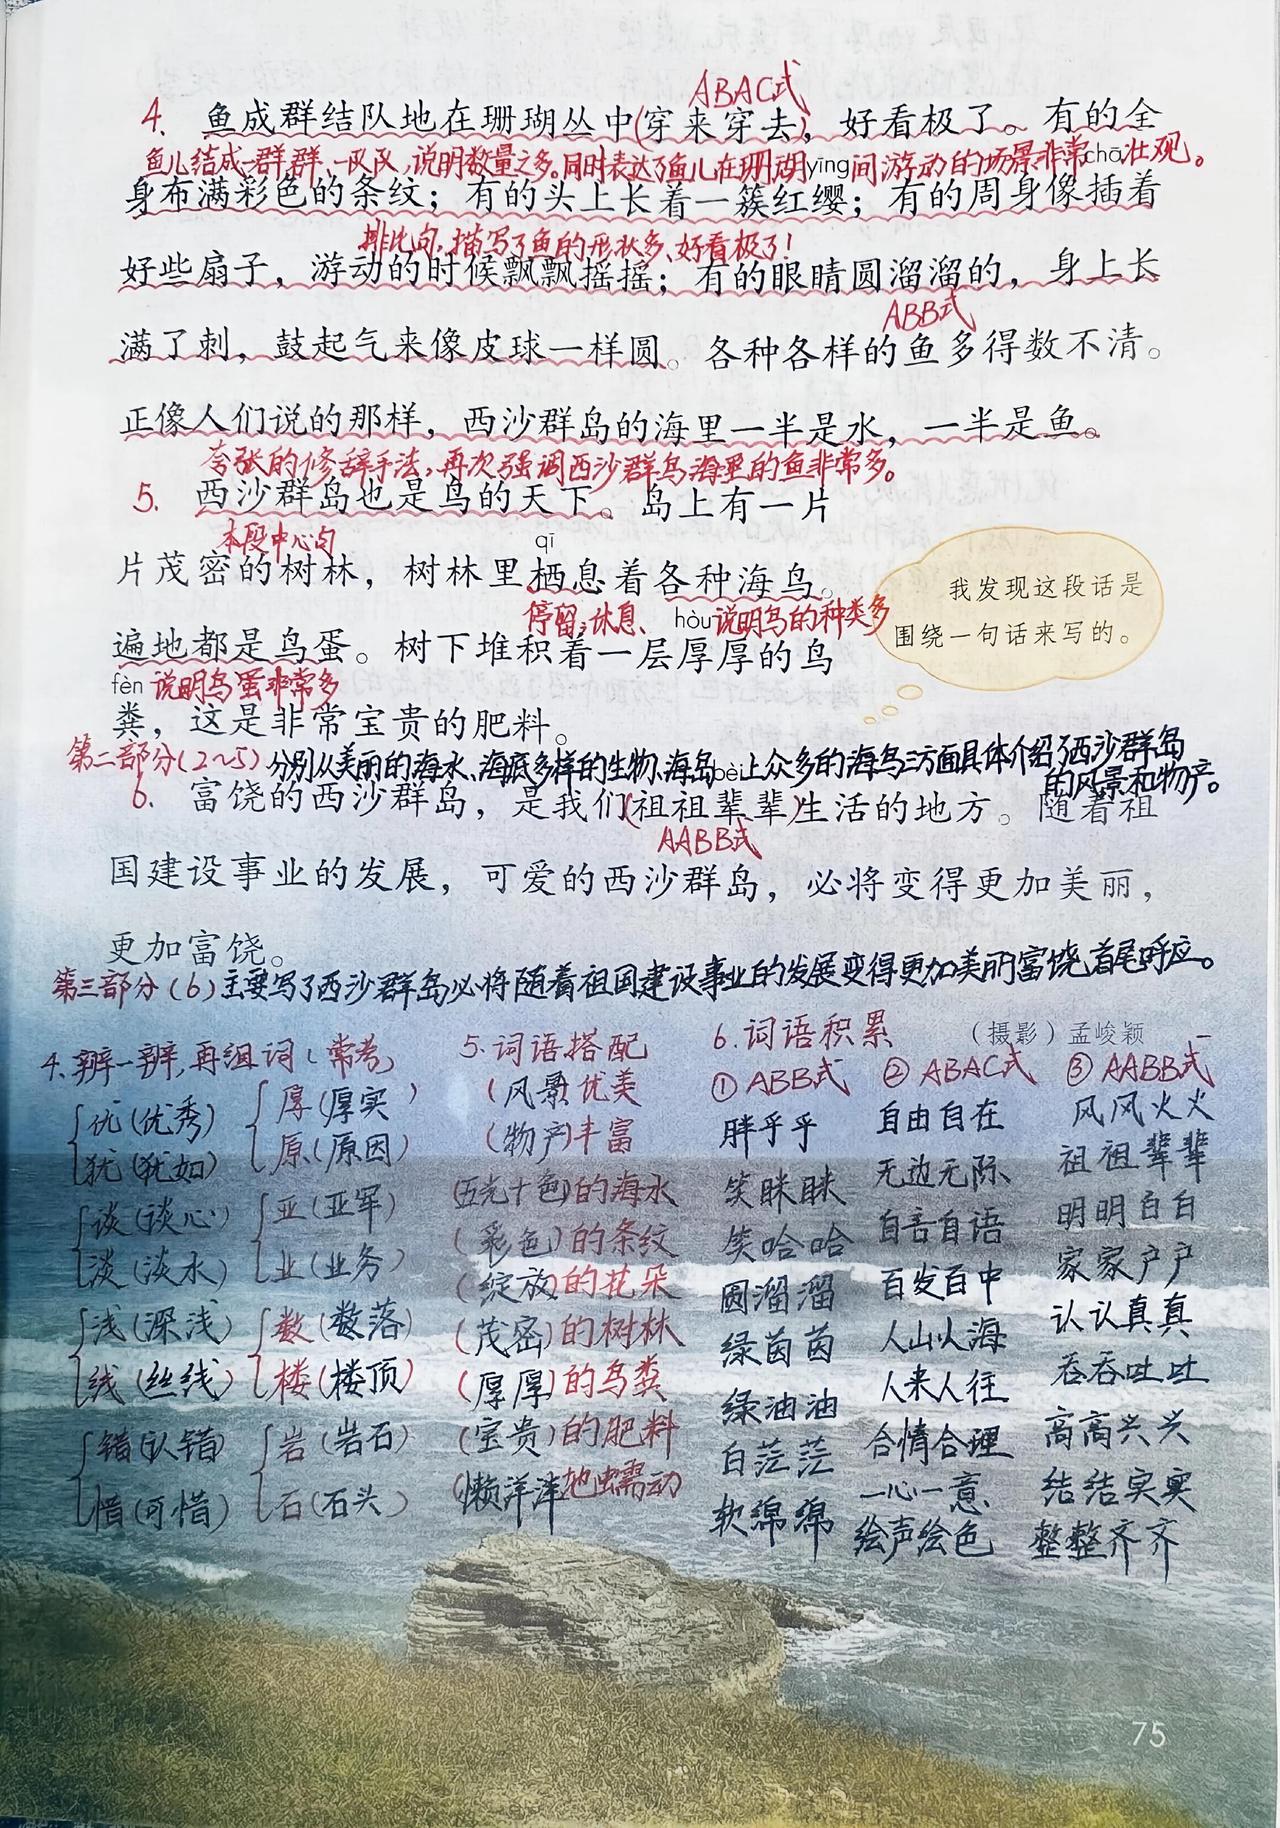 ABAC式
4. 鱼成群结队地在珊瑚丛中(穿来穿去)，好看极了。有的全
鱼儿结成一群群、一队队，说明数量之多。同时表达了鱼儿在珊瑚间游动的场景非常壮观。
yīng chā
身布满彩色的条纹；有的头上长着一簇红缨；有的周身像插着
排比句，描写了鱼的形状多、好看极了！
好些扇子，游动的时候飘飘摇摇；有的眼睛圆溜溜的，身上长
ABB式
满了刺，鼓起气来像皮球一样圆。各种各样的鱼多得数不清。
正像人们说的那样，西沙群岛的海里一半是水，一半是鱼。
夸张的修辞手法，再次强调西沙群岛海里的鱼非常多。
5. 西沙群岛也是鸟的天下。岛上有一片
本段中心句
qī
片茂密的树林，树林里栖息着各种海鸟。
停留；休息、 hòu 说明鸟的种类多
遍地都是鸟蛋。树下堆积着一层厚厚的鸟
fèn 说明鸟蛋非常多
粪，这是非常宝贵的肥料。
我发现这段话是
围绕一句话来写的。
第二部分(2~5) 分别从美丽的海水、海底多样的生物、海岛上众多的海鸟三方面具体介绍了西沙群岛
的风景和物产。
bèi
6. 富饶的西沙群岛，是我们(祖祖辈辈)生活的地方。随着祖
AABB式
国建设事业的发展，可爱的西沙群岛，必将变得更加美丽，
更加富饶。
第三部分(6) 主要写了西沙群岛必将随着祖国建设事业的发展变得更加美丽富饶，首尾呼应。
(摄影) 孟峻颖
4. 辨一辨，再组词(常考)
优(优秀) 厚(厚实)
犹(犹如) 原(原因)
谈(谈心) 亚(亚军)
淡(淡水) 业(业务)
浅(深浅) 数(数落)
线(丝线) 楼(楼顶)
错(认错) 岩(岩石)
惜(可惜) 石(石头)
5. 词语搭配
(风景)优美
(物产)丰富
(五光十色)的海水
(彩色)的条纹
(绽放)的花朵
(茂密)的树林
(厚厚)的鸟粪
(宝贵)的肥料
(懒洋洋地蠕动
6. 词语积累
① ABB式
胖乎乎
笑眯眯
笑哈哈
圆溜溜
绿茵茵
绿油油
白茫茫
软绵绵
② ABAC式
自由自在
无边无际
自言自语
百发百中
人山人海
人来人往
合情合理
一心一意
绘声绘色
③ AABB式
风风火火
祖祖辈辈
明明白白
家家户户
认认真真
吞吞吐吐
高高兴兴
结结实实
整整齐齐
75